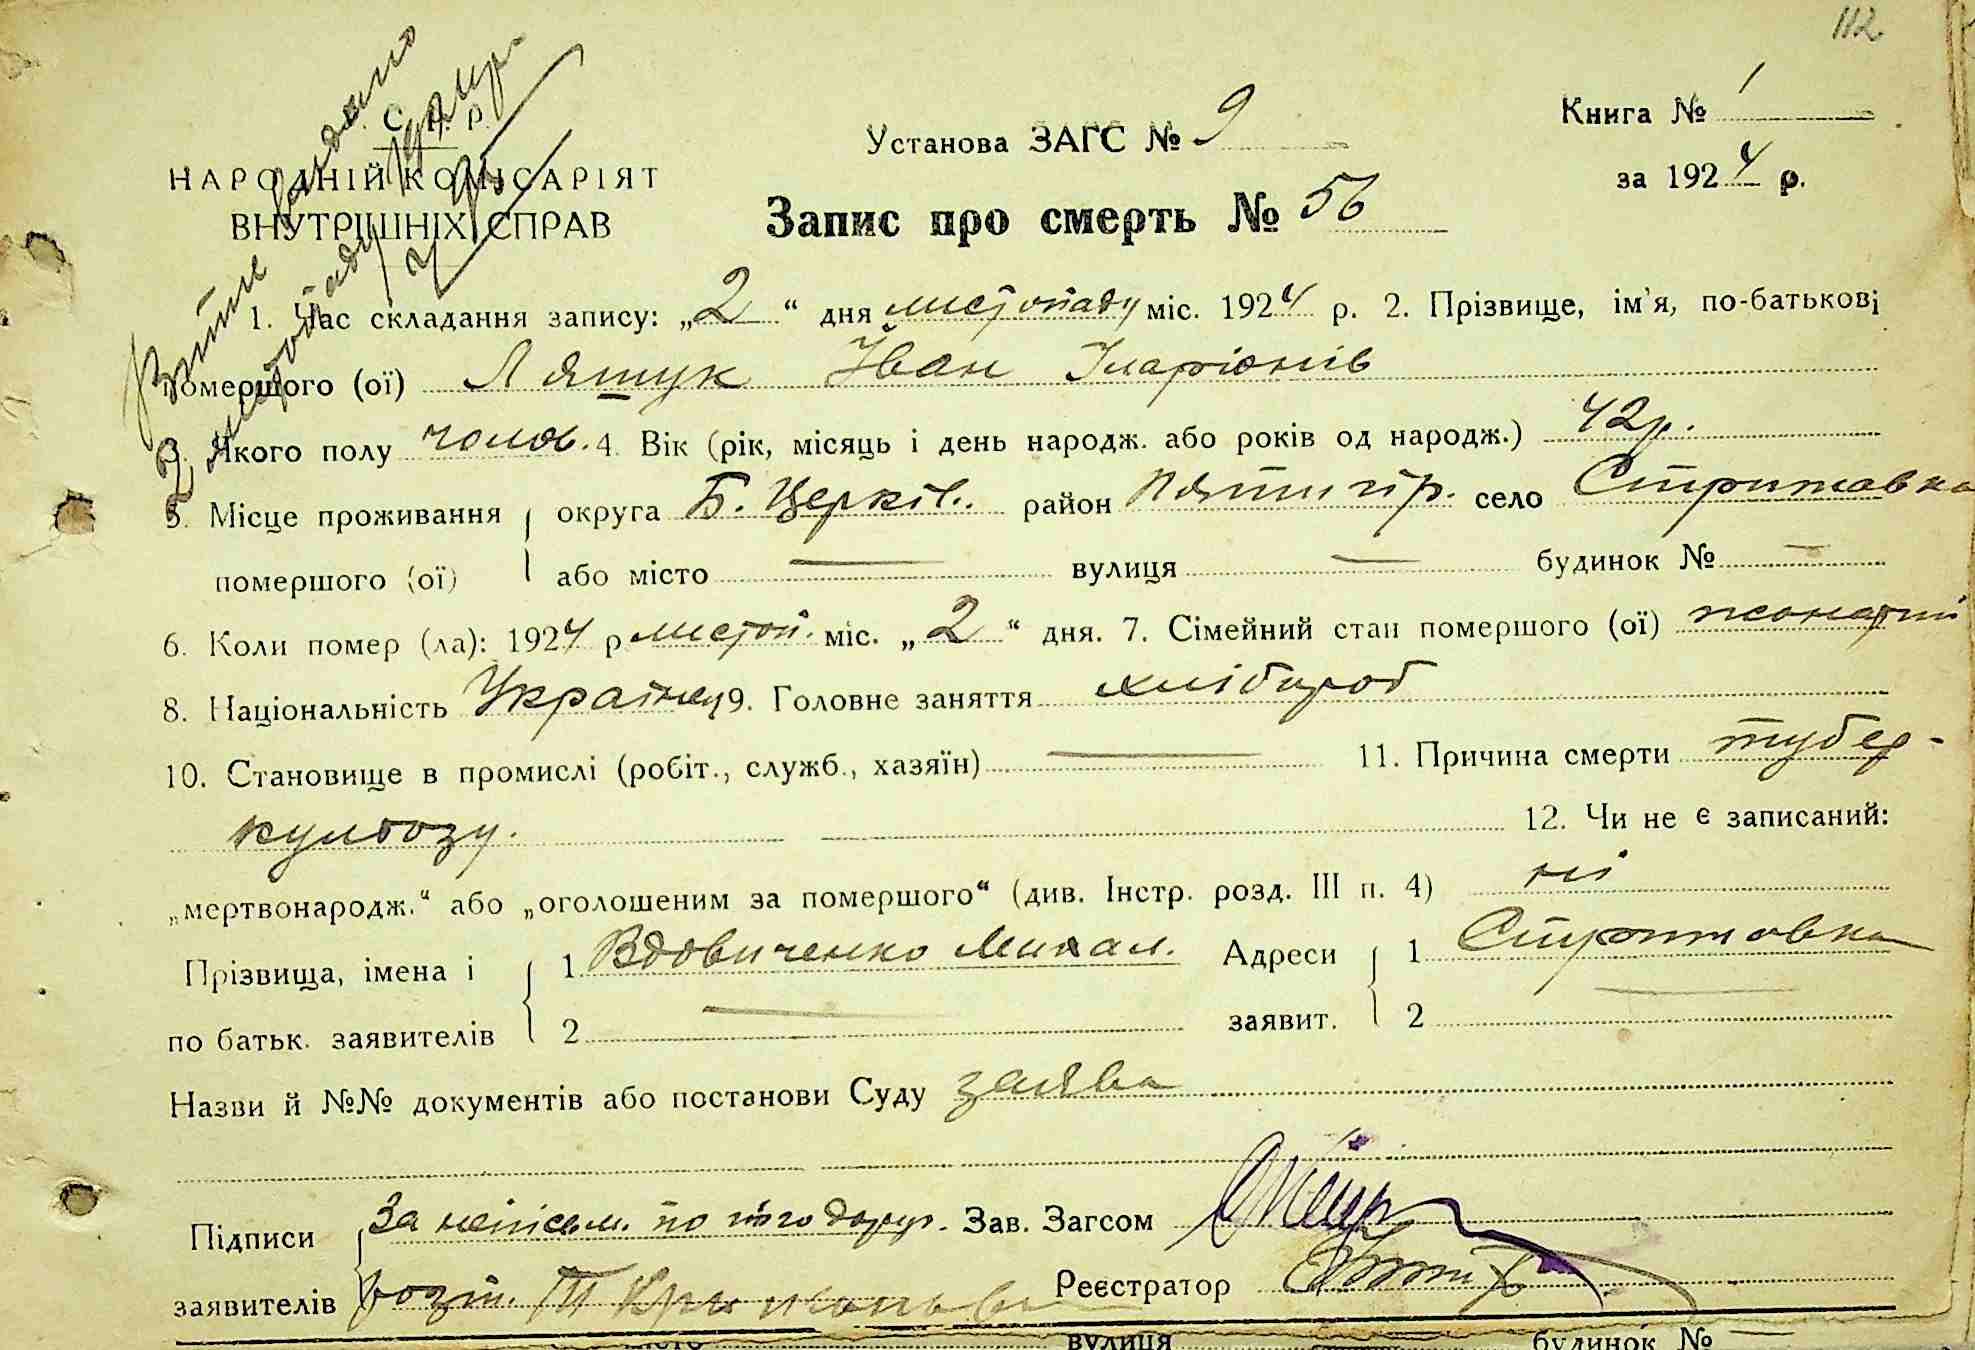 112
С. Р. Р.
НАРОДНІЙ КОМІСАРІЯТ
ВНУТРІШНІХ СПРАВ
Витяг видано
2 листопаду 1924 р.
Установа ЗАГС № 9
Книга № 1
за 1924 р.
Запис про смерть № 56
1. Час складання запису: „2“ дня листопаду міс. 1924 р. 2. Прізвище, ім'я, по-батькові
померщого (ої) Ляшук Іван Іларіонів
3. Якого полу чолов. 4. Вік (рік, місяць і день народж. або років од народж.) 42 р.
5. Місце проживання округа Б. Церків. район Пятигір. село Стрижавка
помершого (ої) або місто — вулиця — будинок № —
6. Коли помер (ла): 1924 р листоп. міс. „2“ дня. 7. Сімейний стан помершого (ої) жонатий
8. Національність Українец 9. Головне заняття хлібороб
10. Становище в промислі (робіт., служб., хазяїн) — 11. Причина смерти тубер-
кульозу. 12. Чи не є записаний:
„мертвонародж.“ або „оголошеним за помершого“ (див. Інстр. розд. III п. 4) ні
Прізвища, імена і 1 Вдовиченко Михал. Адреси 1 Стрижавка
по батьк. заявителів 2 — заявит. 2 —
Назви й №№ документів або постанови Суду заява
Підписи За непісьм. по його доруч. Зав. Загсом
заявителів розп. Реєстратор
вулиця будинок № —